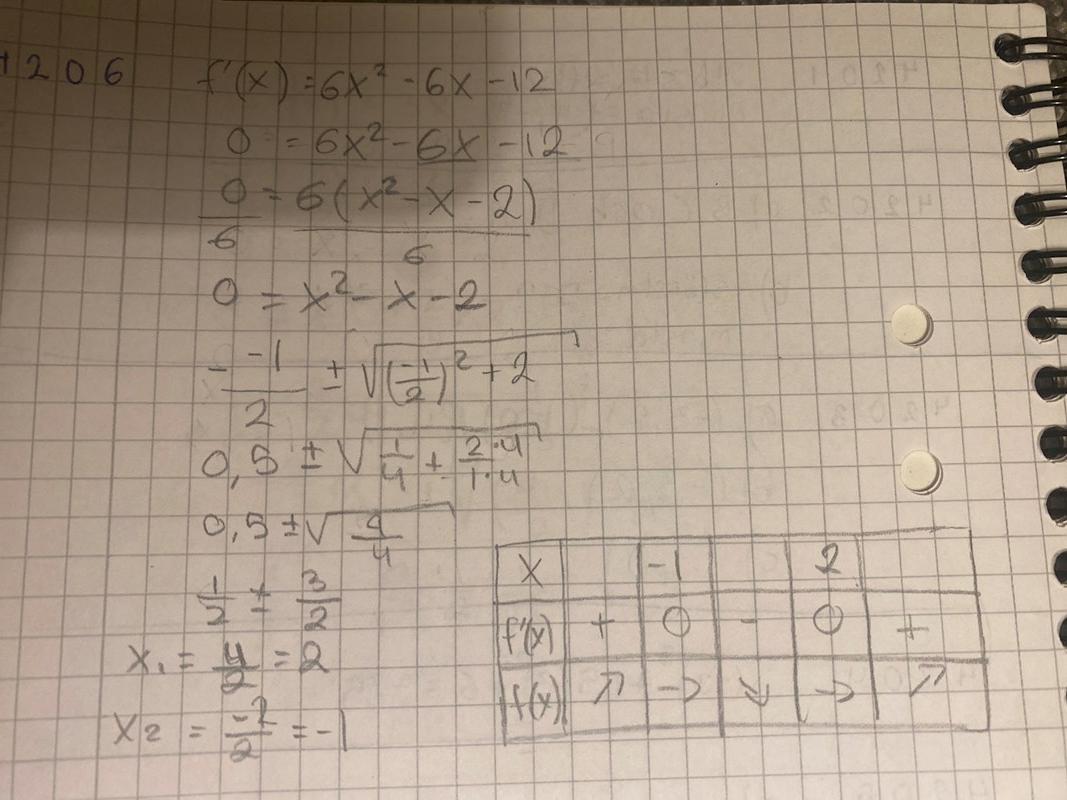 4206
f'(x) = 6x² - 6x - 12
0 = 6x² - 6x - 12
0/6 = 6(x² - x - 2)/6
0 = x² - x - 2
- -1/2 ± √((-1/2)² + 2)
0,5 ± √(1/4 + 2·4/1·4)
0,5 ± √(9/4)
1/2 ± 3/2
x₁ = 4/2 = 2
x₂ = -2/2 = -1
x -1 2
f'(x) + 0 - 0 +
f(x) ↗ → ↘ → ↗